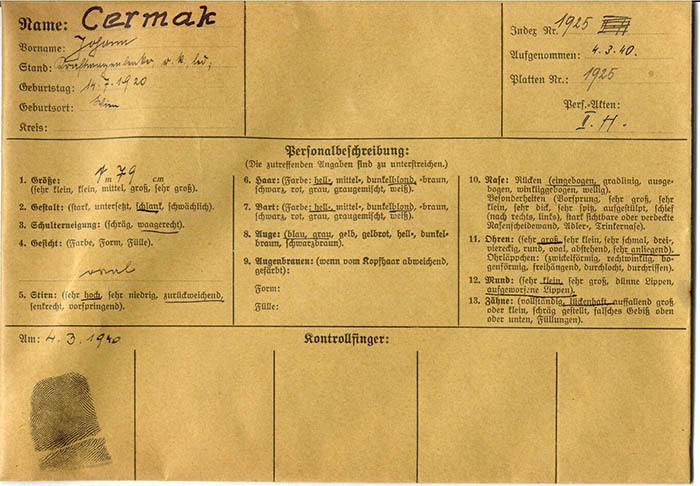 Name: Cermak
Vorname: Johann
Stand: Kraftwagenlenker r. k., led.,
Geburtstag: 14.7.1920
Geburtsort: Wien
Kreis:
Index Nr. 1925
Aufgenommen: 4.3.40.
Platten Nr.: 1925
Pers.-Akten:
II. H.
Personalbeschreibung:
(Die zutreffenden Angaben sind zu unterstreichen.)
1. Größe: 1 m 79 cm
(sehr klein, klein, mittel, groß, sehr groß).
2. Gestalt: (stark, untersetzt, schlank, schwächlich).
3. Schulterneigung: (schräg, waagerecht).
4. Gesicht: (Farbe, Form, Fülle).
oval
5. Stirn: (sehr hoch, sehr niedrig, zurückweichend,
senkrecht, vorspringend).
6. Haar: (Farbe: hell-, mittel-, dunkelblond, -braun,
schwarz, rot, grau, graugemischt, weiß).
7. Bart: (Farbe: hell-, mittel-, dunkelblond, -braun,
schwarz, rot, grau, graugemischt, weiß).
8. Auge: (blau, grau, gelb, gelbrot, hell-, dunkel-
braun, schwarzbraun).
9. Augenbrauen: (wenn vom Kopfhaar abweichend,
gefärbt):
Form:
Fülle:
10. Nase: Rücken (eingebogen, gradlinig, ausge-
bogen, winkliggebogen, wellig).
Besonderheiten (Vorsprung, sehr groß, sehr
klein, sehr dick, sehr spitz, aufgestülpt, schief
(nach rechts, links), stark sichtbare oder verdeckte
Nasenscheidewand, Adler-, Trinkernase).
11. Ohren: (sehr groß, sehr klein, sehr schmal, drei-
viereckig, rund, oval, abstehend, sehr anliegend).
Ohrläppchen: (zwickelförmig, rechtwinklig, bo-
genförmig, freihängend, durchlocht, durchrissen).
12. Mund: (sehr klein, sehr groß, dünne Lippen,
aufgeworfene Lippen).
13. Zähne: (vollständig, lückenhaft, auffallend groß
oder klein, schräg gestellt, falsches Gebiß oben
oder unten, Füllungen).
Am: 4.3.1940
Kontrollfinger: